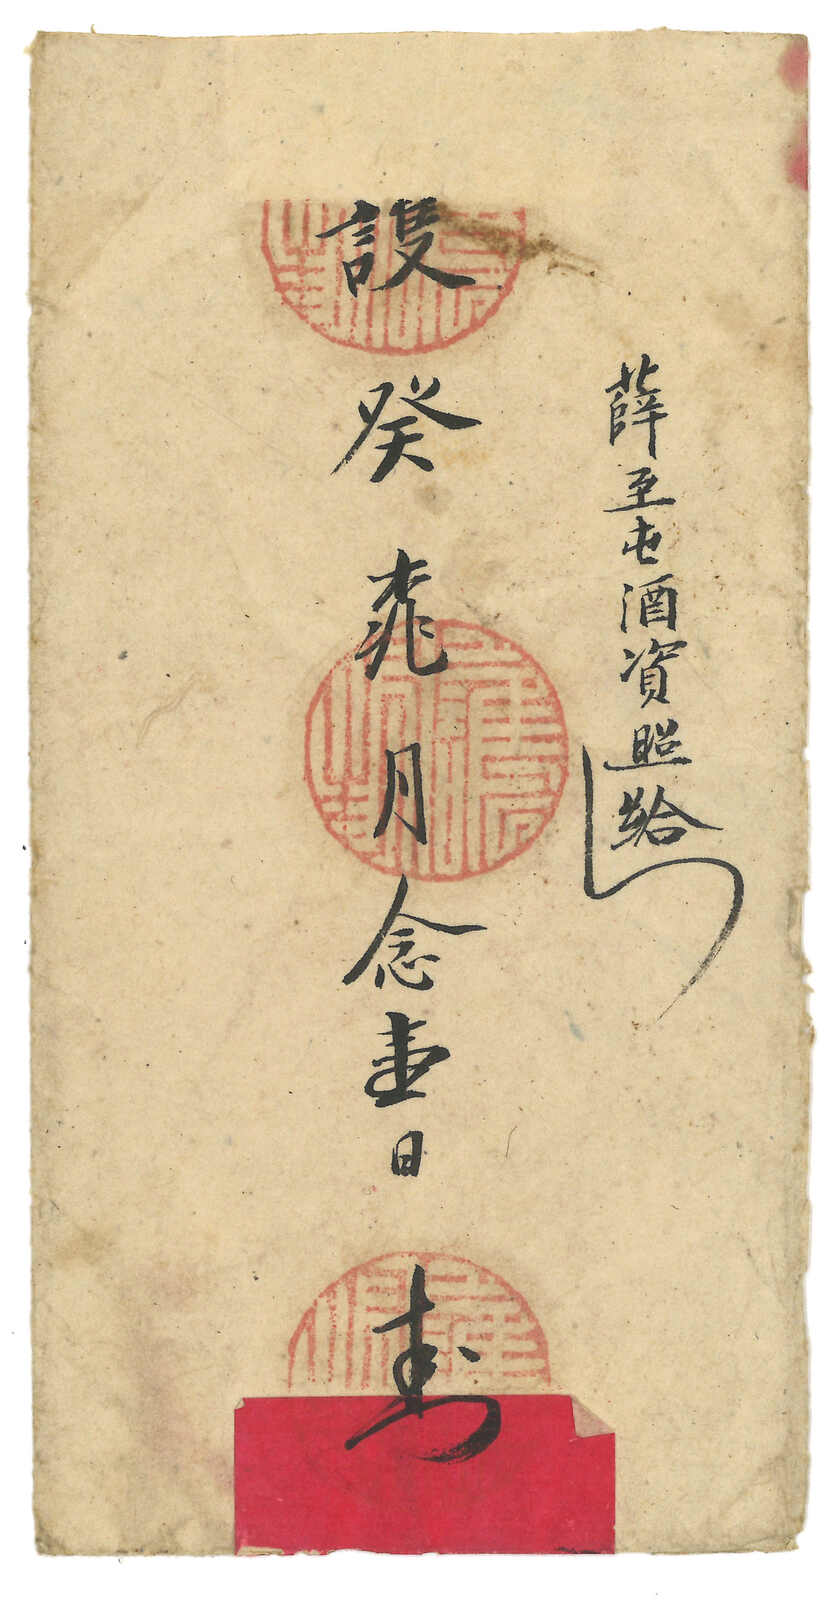 薛至屯酒資照給
謢癸桃月念壹日封